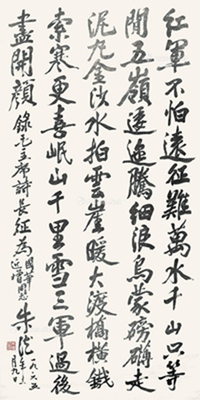 紅軍不怕遠征難萬水千山只等
閒五嶺逶迤騰細浪烏蒙磅礴走
泥丸金沙水拍雲崖暖大渡橋橫鐵
索寒更喜岷山千里雪三軍過後
盡開顏 錄毛主席詩長征為
朱德
一九六五